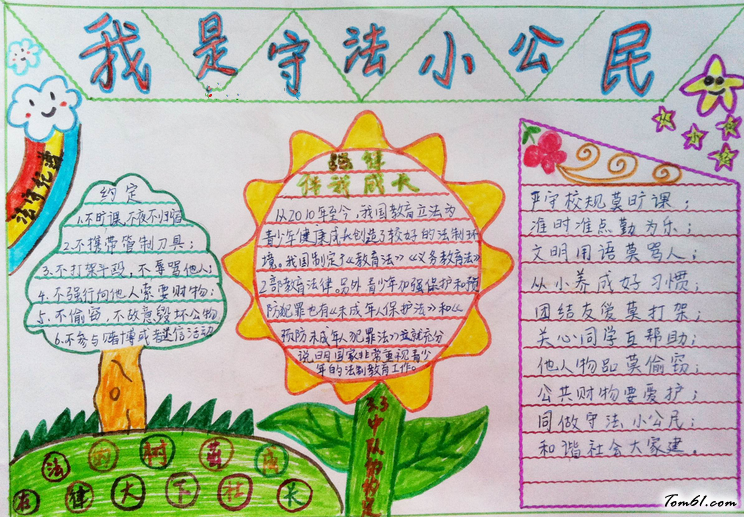 我是守法小公民
约定
1.不旷课、不夜不归宿
2.不携带管制刀具;
3.不打架斗殴,不辱骂他人;
4.不强行向他人索要财物;
5.不偷窃,不故意毁坏公物
6.不参与赌博或迷信活动
法律
伴我成长
从2010年至今,我国教育立法为
青少年健康成长创造了较好的法制环
境。我国制定了《教育法》《义务教育法》
2部教育法律。另外青少年加强保护和预
防犯罪也有《未成年人保护法》和《
预防未成年人犯罪法》这就充分
说明国家非常重视青少
年的法制教育工作。
严守校规莫旷课;
准时准点勤为乐;
文明用语莫骂人;
从小养成好习惯;
团结友爱莫打架;
关心同学互帮助;
他人物品莫偷窃;
公共财物要爱护;
同做守法小公民;
和谐社会大家建。
中队的约定
法的树茁成
在律大下壮长
Tom61.com